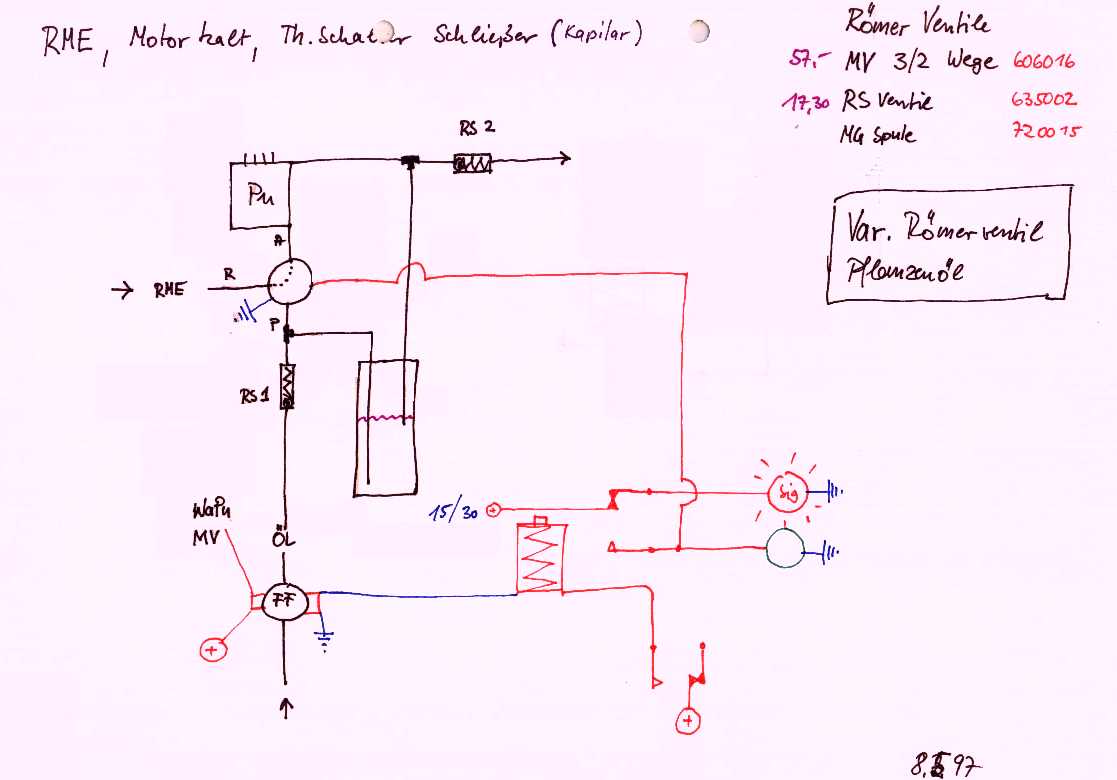 RME, Motor kalt, Th. Schalter Schließer (Kapilar)
Römer Ventile
57,- MV 3/2 Wege 606016
17,30 RS Ventil 635002
MG Spule 720015
Var. Römerventil
Pflanzenöl
RS 2
Pu
A
R
RME
P
RS1
WaPu
MV
ÖL
FF
+
15/30 +
Sig
+